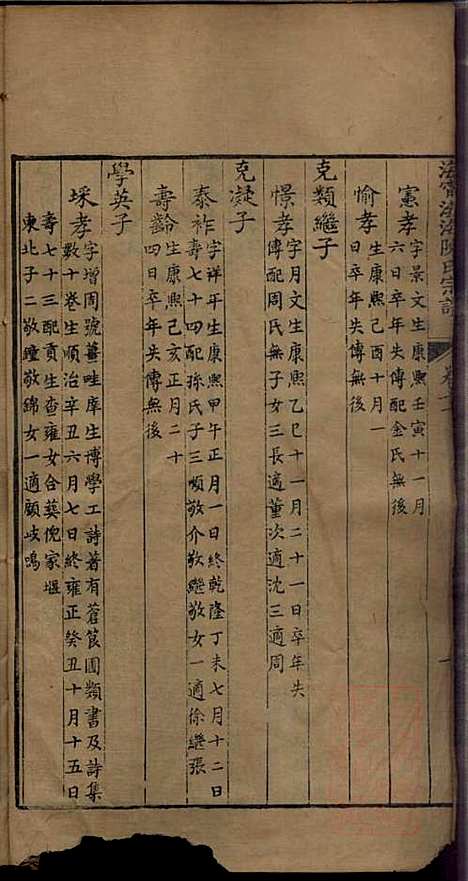 海寧渤海陳氏宗譜
卷十
憲孝
字景文生康熙壬寅十一月
六日卒年失傳配金氏無後
愉孝
生康熙己酉十月一
日卒年失傳無後
克類繼子
憬孝
字月文生康熙乙巳十一月二十一日卒年失
傳配周氏無子女三長適董次適沈三適周
克凝子
泰祚
字祥年生康熙甲午正月一日終乾隆丁未七月十二日
壽七十四配孫氏子三順敬介敬繼敬女一適徐繼張
壽齡
生康熙己亥正月二十
四日卒年失傳無後
學英子
埰孝
字增周號薑畦庠生博學工詩著有蒼筤圃類書及詩集
數十卷生順治辛丑六月七日終雍正癸丑十月十五日
壽七十三配貢生查雍女合葬倪家堰
東北子二敬鐘敬錦女一適顧岐鳴